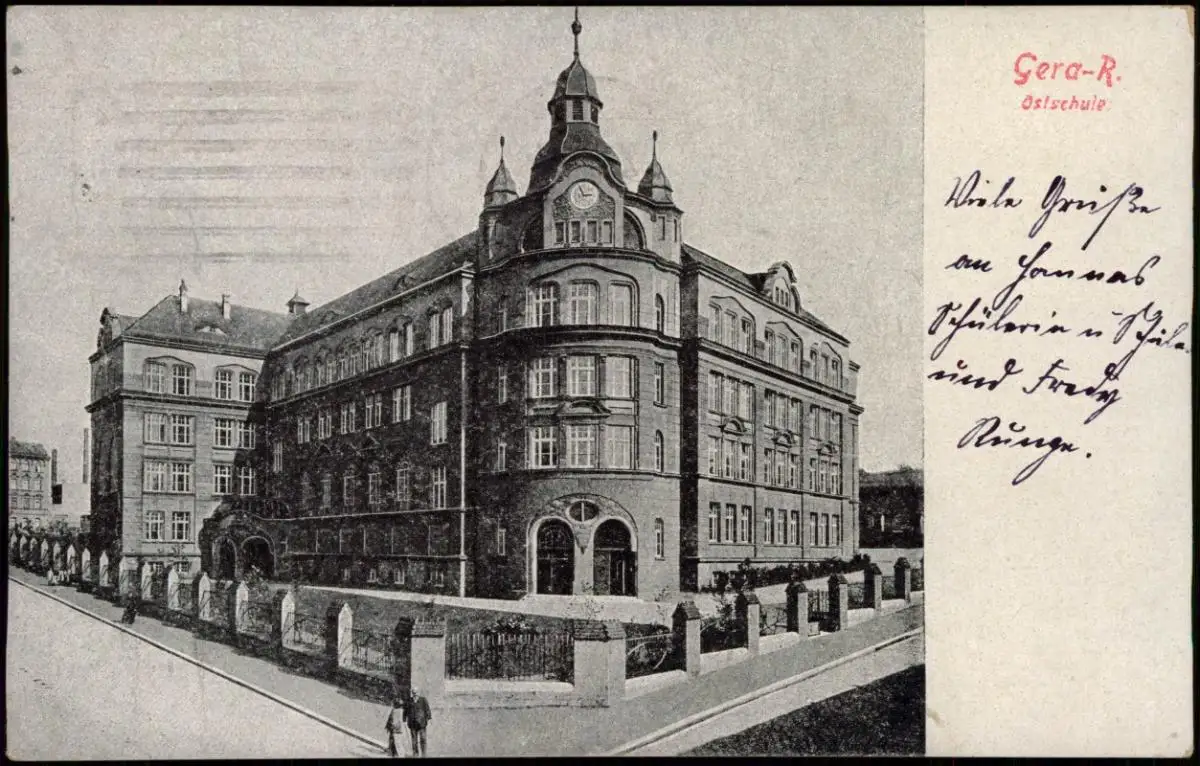 Gera-R.
Ostschule
Viele Grüße
an Hannas
Schülerin u Schule
und Fredy
Runge.